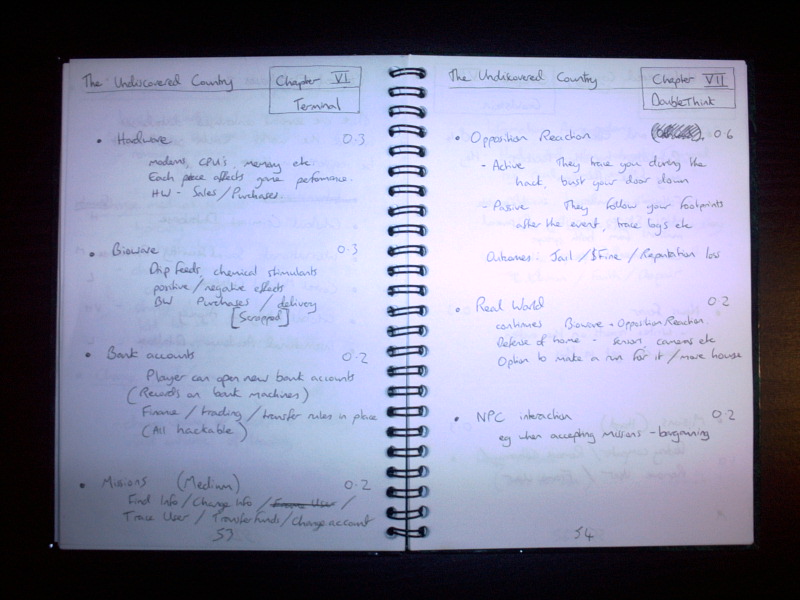 The Undiscovered Country
Chapter VI
Terminal
• Hardware 0.3
modems, CPU's, memory etc
Each piece affects game peformance.
HW - Sales / Purchases.
• Bioware 0.3
Drip feeds, chemical stimulants
positive / negative effects
BW Purchases / delivery
[Scrapped]
• Bank accounts 0.2
Player can open new bank accounts
(Records on bank machines)
Finance / trading / transfer rules in place
(All hackable)
• Missions (Medium) 0.2
Find Info / Change Info / Frame User /
Trace User / Transfer funds / Change account
53
The Undiscovered Country
Chapter VII
DoubleThink
• Opposition Reaction 0.6
- Active They trace you during the
hack, bust your door down
- Passive They follow your footprints
after the event, trace logs etc
Outcomes: Jail / $Fine / Reputation loss
• Real World 0.2
continues Bioware + Opposition Reaction.
Defense of home - sensors, cameras etc
Option to make a run for it / move house
• NPC interaction 0.2
eg when accepting missions - bargaining
54